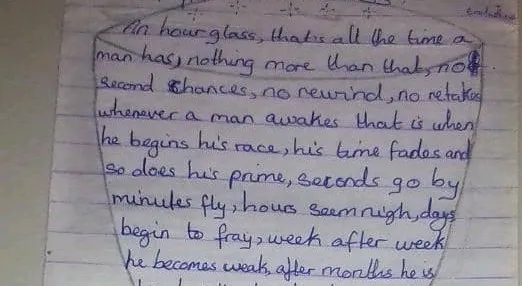 An hourglass, that's all the time a
man has, nothing more than that, no
second chances, no rewind, no retakes
whenever a man awakes that is when
he begins his race, his time fades and
so does his prime, seconds go by
minutes fly, hours seem nigh, days
begin to fray, week after week
he becomes weak, after months he is